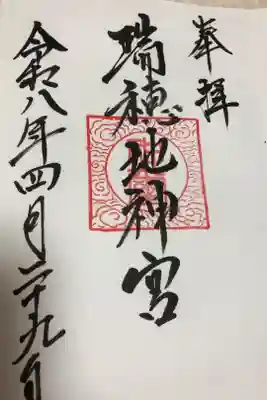 奉拝
瑞穂地神宮
令和八年四月二十九日